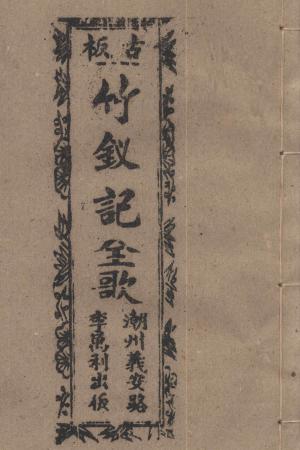 古板
竹釵記全歌
潮州義安路
李萬利出版